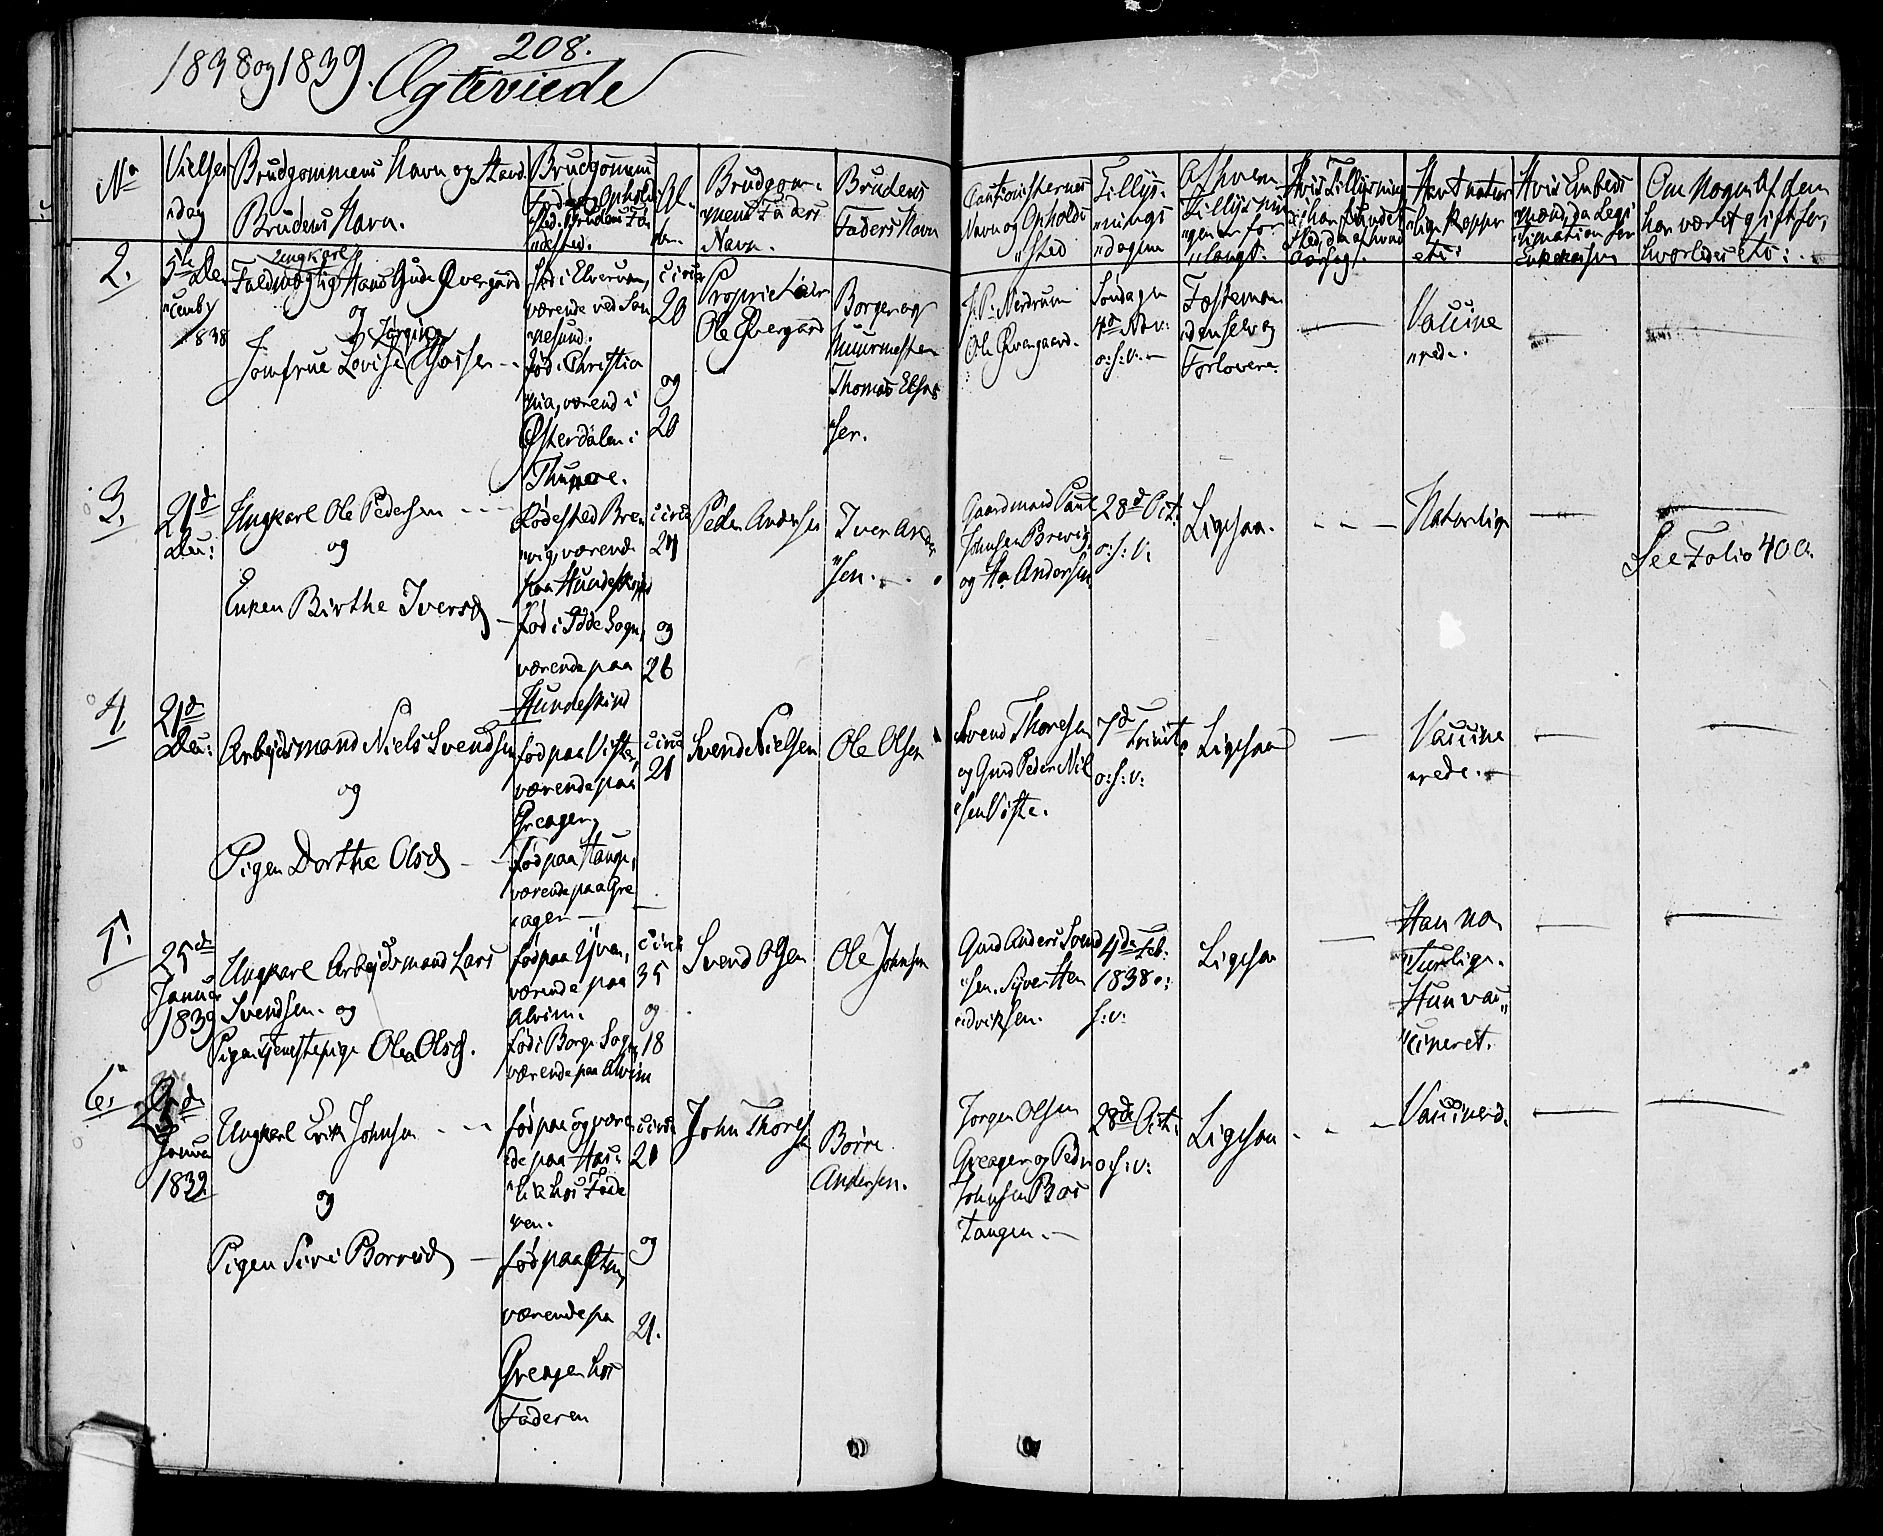 208.
1838 og 1839. Ægteviede
No
Vielses
dag
Brudgommens Navn og Stand.
Brudens Navn.
Brudgommens
Fødested
sted. Brudens Fø
dested.
Al-
der.
Brudgom-
mens Faders
Navn.
Brudens
Faders Navn
Cautionisternes
Navn og Opholds
sted
Tillys-
nings
dagen
Af hvem
Tillysnin
gen er for
langt.
Hvis Tillysning
ei har fundet
Sted, da af hvad
Aarsag.
Havt natur
lige Kopper
etc:
Hvis Embeds
mænd, da Legi
timation for
Enkekassen
Om Nogen af dem
har været gift før,
hvorledes etc:
2.
5te De
cemb.
1838
Ungkarl
Fuldmægtig Hans Gude Øvergard
og
Jørgine
Jomfrue Lovise
Fød i Elverum,
værende ved Son
nesund.
Fød i Christia
nia, værend i
Østerdalen i
circa
20
og
20
Proprietair
Ole Øvergard
Borger og
Muurmester
Thomas
sen.
J. P. Nerdrum
Ole Øvergaard.
Søndagen
4d Nov:
o: s: v. —
Fæstemon
den selv og
Forlovere.
—
Vaccine
rede.
—
—
3.
21d
Dec:
Ungkarl Ole Pedersen - - -
og
Enken Birthe Iversd
Fødested Bre
vig, værende
paa Hundeskind
Fød i Idde Sogn,
værende paa
Hundeskind
circa
24
og
26
Peder Andersen
Iver Ander
sen.
Gaardmand Paul
Johnsen Brevig
og Ha Andersen
28d Oct.
o: s: v:
Ligesaa.
- - -
Naturlige
—
—
See Folio 40 a.
4.
21d
Dec:
Arbejdsmand Niels Svendsen
og
Pigen Dorthe Olsd - -
Fød paa Viste,
værende paa
Greager,
Fød paa Hauge,
værende paa Gre
ager —
circa
21
—
Svend Nielsen
Ole Olsen
Svend Thoresen
og Gmd Peder Niel
sen Viste.
7d
Trinit.
o: s: v:
Ligesaa
—
Vaccine
rede. —
—
—
5.
25de
Janua
1839
Ungkarl Arbejdsmand Lars
Svendsen. og
Pigen Tjenestepige Olea Olsd.
værende paa
Alvim.
Fød i Borge Sogn,
værende paa Alvim
circa
35
og
18
Svend Olsen
Ole Johnsen
Gmd Anders Svend
sen. Syver Hen
driksen.
4de Feb:
1838 o:
s: v:
Ligesaa
—
Han na
turlige.
Hun vac
cineret.
—
—
6.
Janua
1839
Ungkarl Erik Johnsen - - -
og
Pigen Siri Børresd —
Fød paa og være
de paa
hos Fade
ren.
Fød paa
værende pa
Greager hos
Faderen
circa
20
og
21.
John Thoresen
Børre
Andersen.
Jørgen Olsen
Greager og Peder
Johnsen Bos
tangen. —
28de Oct:
o: s: v:
Ligesaa
- - -
Vaccinerd.
—
—